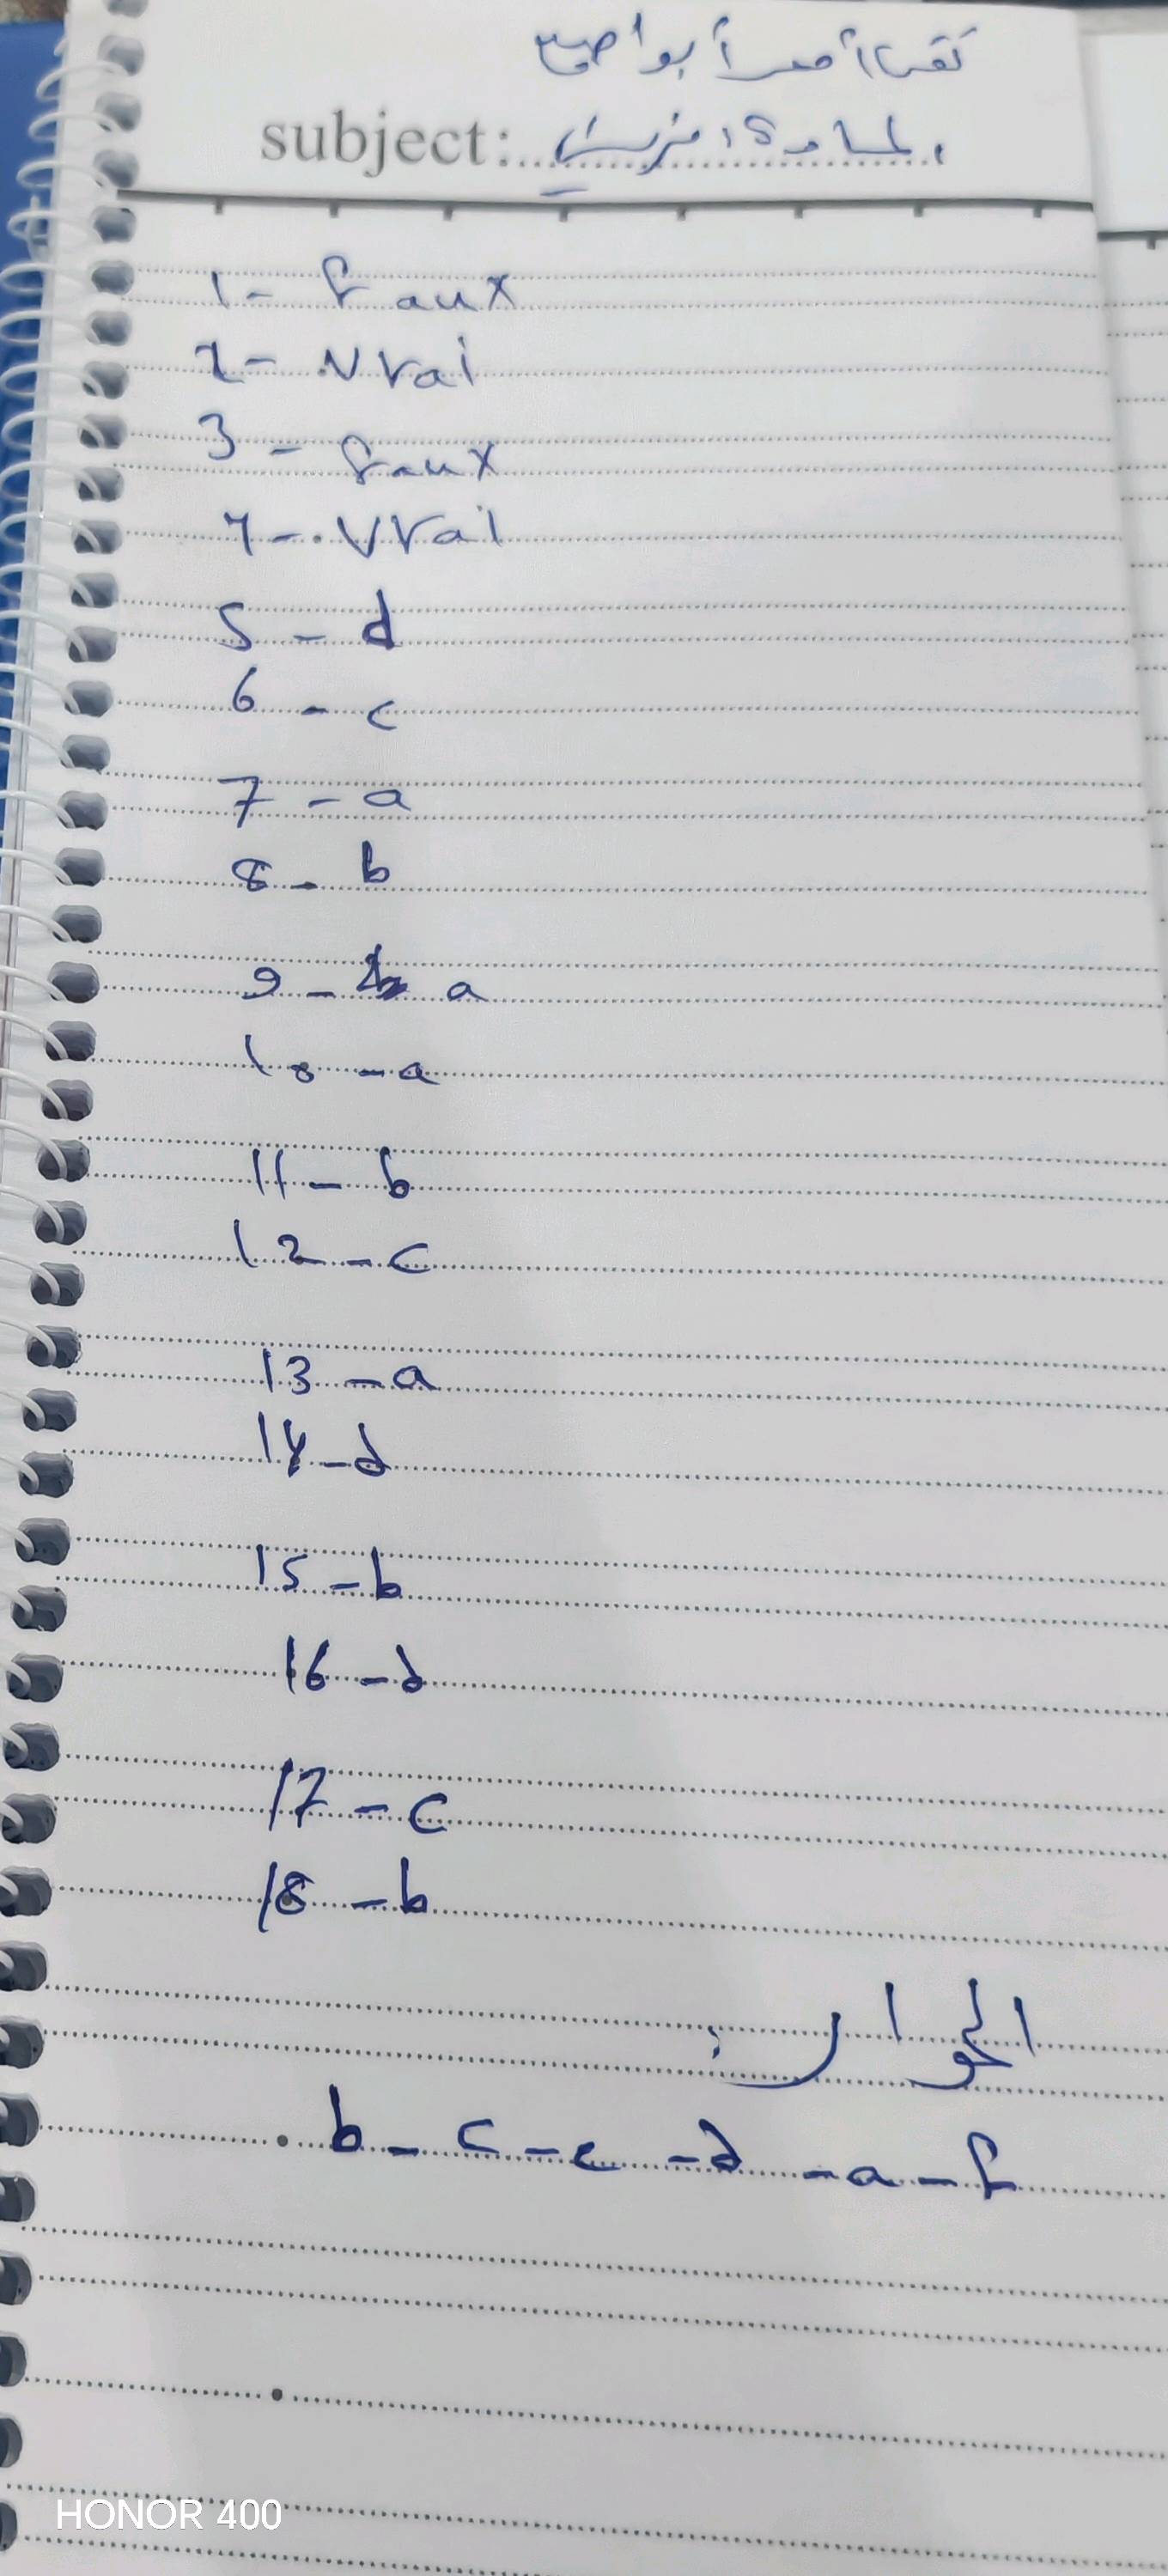 subject: المادة: فرنسي
1- Faux
2- Vrai
3- Faux
4- Vrai
5- d
6- c
7- a
8- b
9- a
10- a
11- b
12- c
13- a
14- d
15- b
16- d
17- c
18- b
الحوار:
b- c - e - d - a - f
HONOR 400